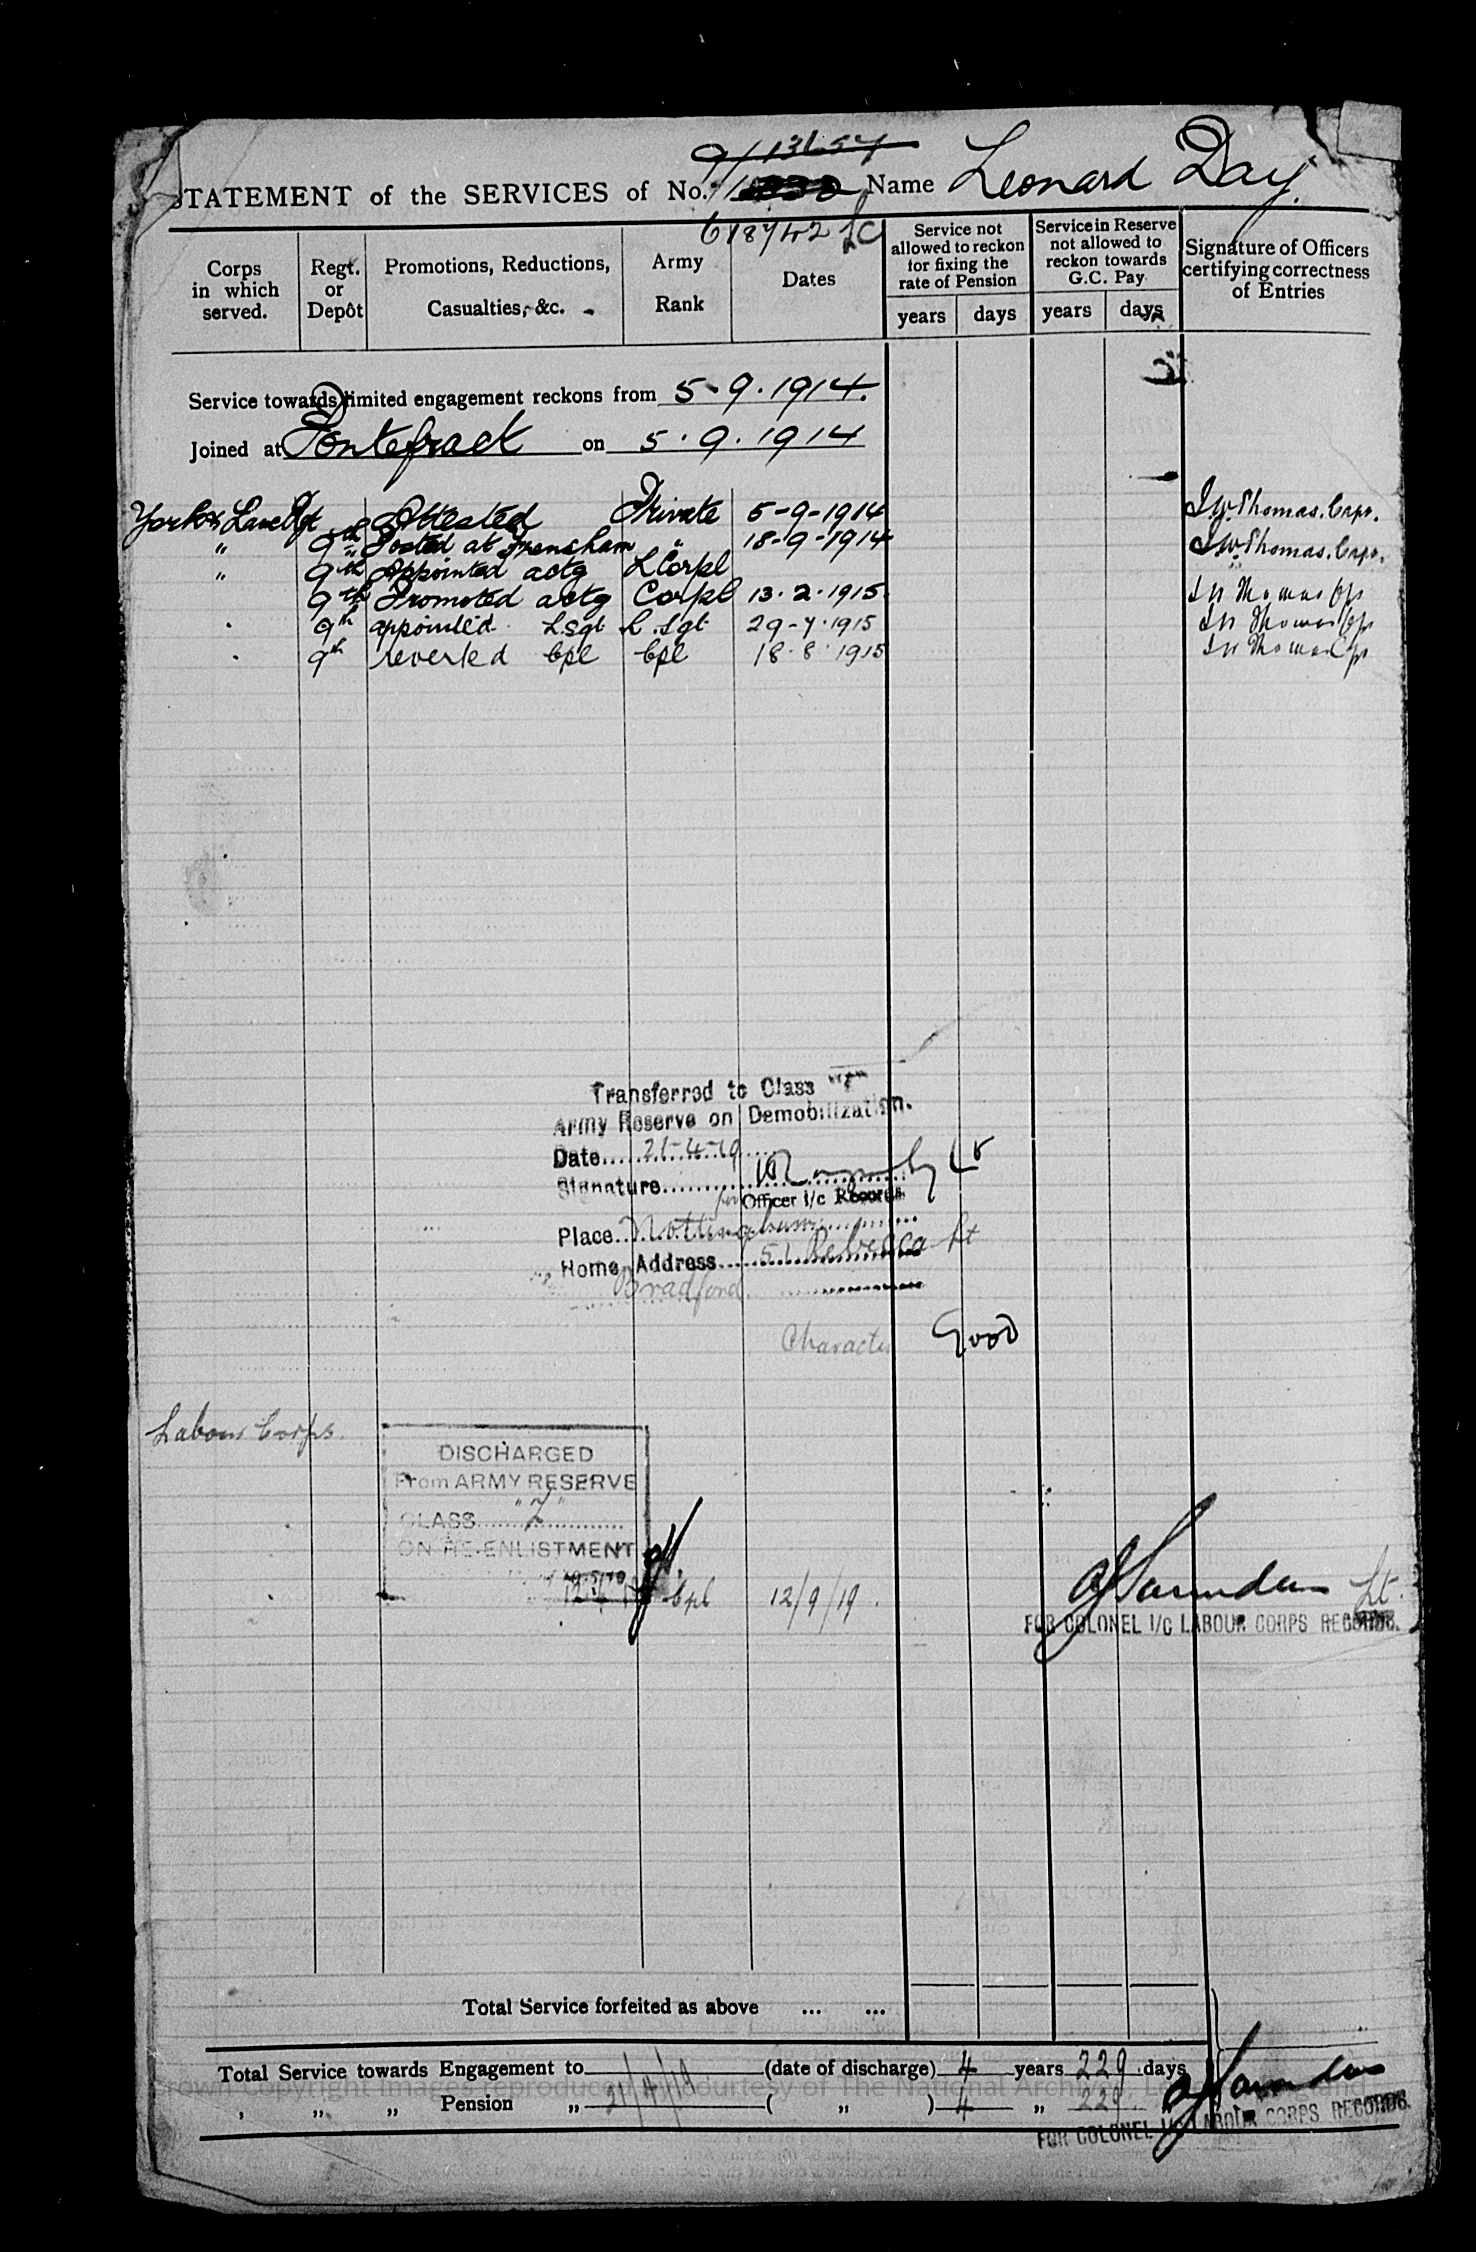 9/13657
STATEMENT of the SERVICES of No. Name Leonard Day.
618742 LC
Corps in which served.
Regt. or Depôt
Promotions, Reductions, Casualties, &c.
Army Rank
Dates
Service not allowed to reckon for fixing the rate of Pension
years days
Service in Reserve not allowed to reckon towards G.C. Pay
years days
Signature of Officers certifying correctness of Entries
Service towards limited engagement reckons from 5-9.1914.
Joined at Pontefract on 5.9.1914
York & Lanc Rgt Attested Private 5-9-1914 J.W. Thomas. Capt.
" 9th Posted at Frensham " 18-9-1914 J.W. Thomas. Capt.
" 9th Appointed actg L Corpl
9th Promoted actg Corpl 13.2.1915 Thomas
9th appointed L Sgt L. Sgt 29-7-1915 Thomas
9th reverted Cpl Cpl 18.8.1915 Thomas
Transferred to Class
Army Reserve on Demobilization.
Date 21-4-19
Signature Lt
for Officer i/c Records
Place Nottingham
Home Address 51 Rebecca St
Bradford
Character Good
Labour Corps.
DISCHARGED
From ARMY RESERVE
CLASS "Z"
ON RE-ENLISTMENT
Cpl 12/9/19. Saunders Lt.
FOR COLONEL I/C LABOUR CORPS RECORDS.
Total Service forfeited as above ... ...
Total Service towards Engagement to 21/4/19 (date of discharge) 4 years 229 days
Crown Copyright Images reproduced courtesy of The National Archives, London, England
" " " Pension " 21/4/19 ( " ) 4 " 229 Saunders
FOR COLONEL I/C LABOUR CORPS RECORDS.